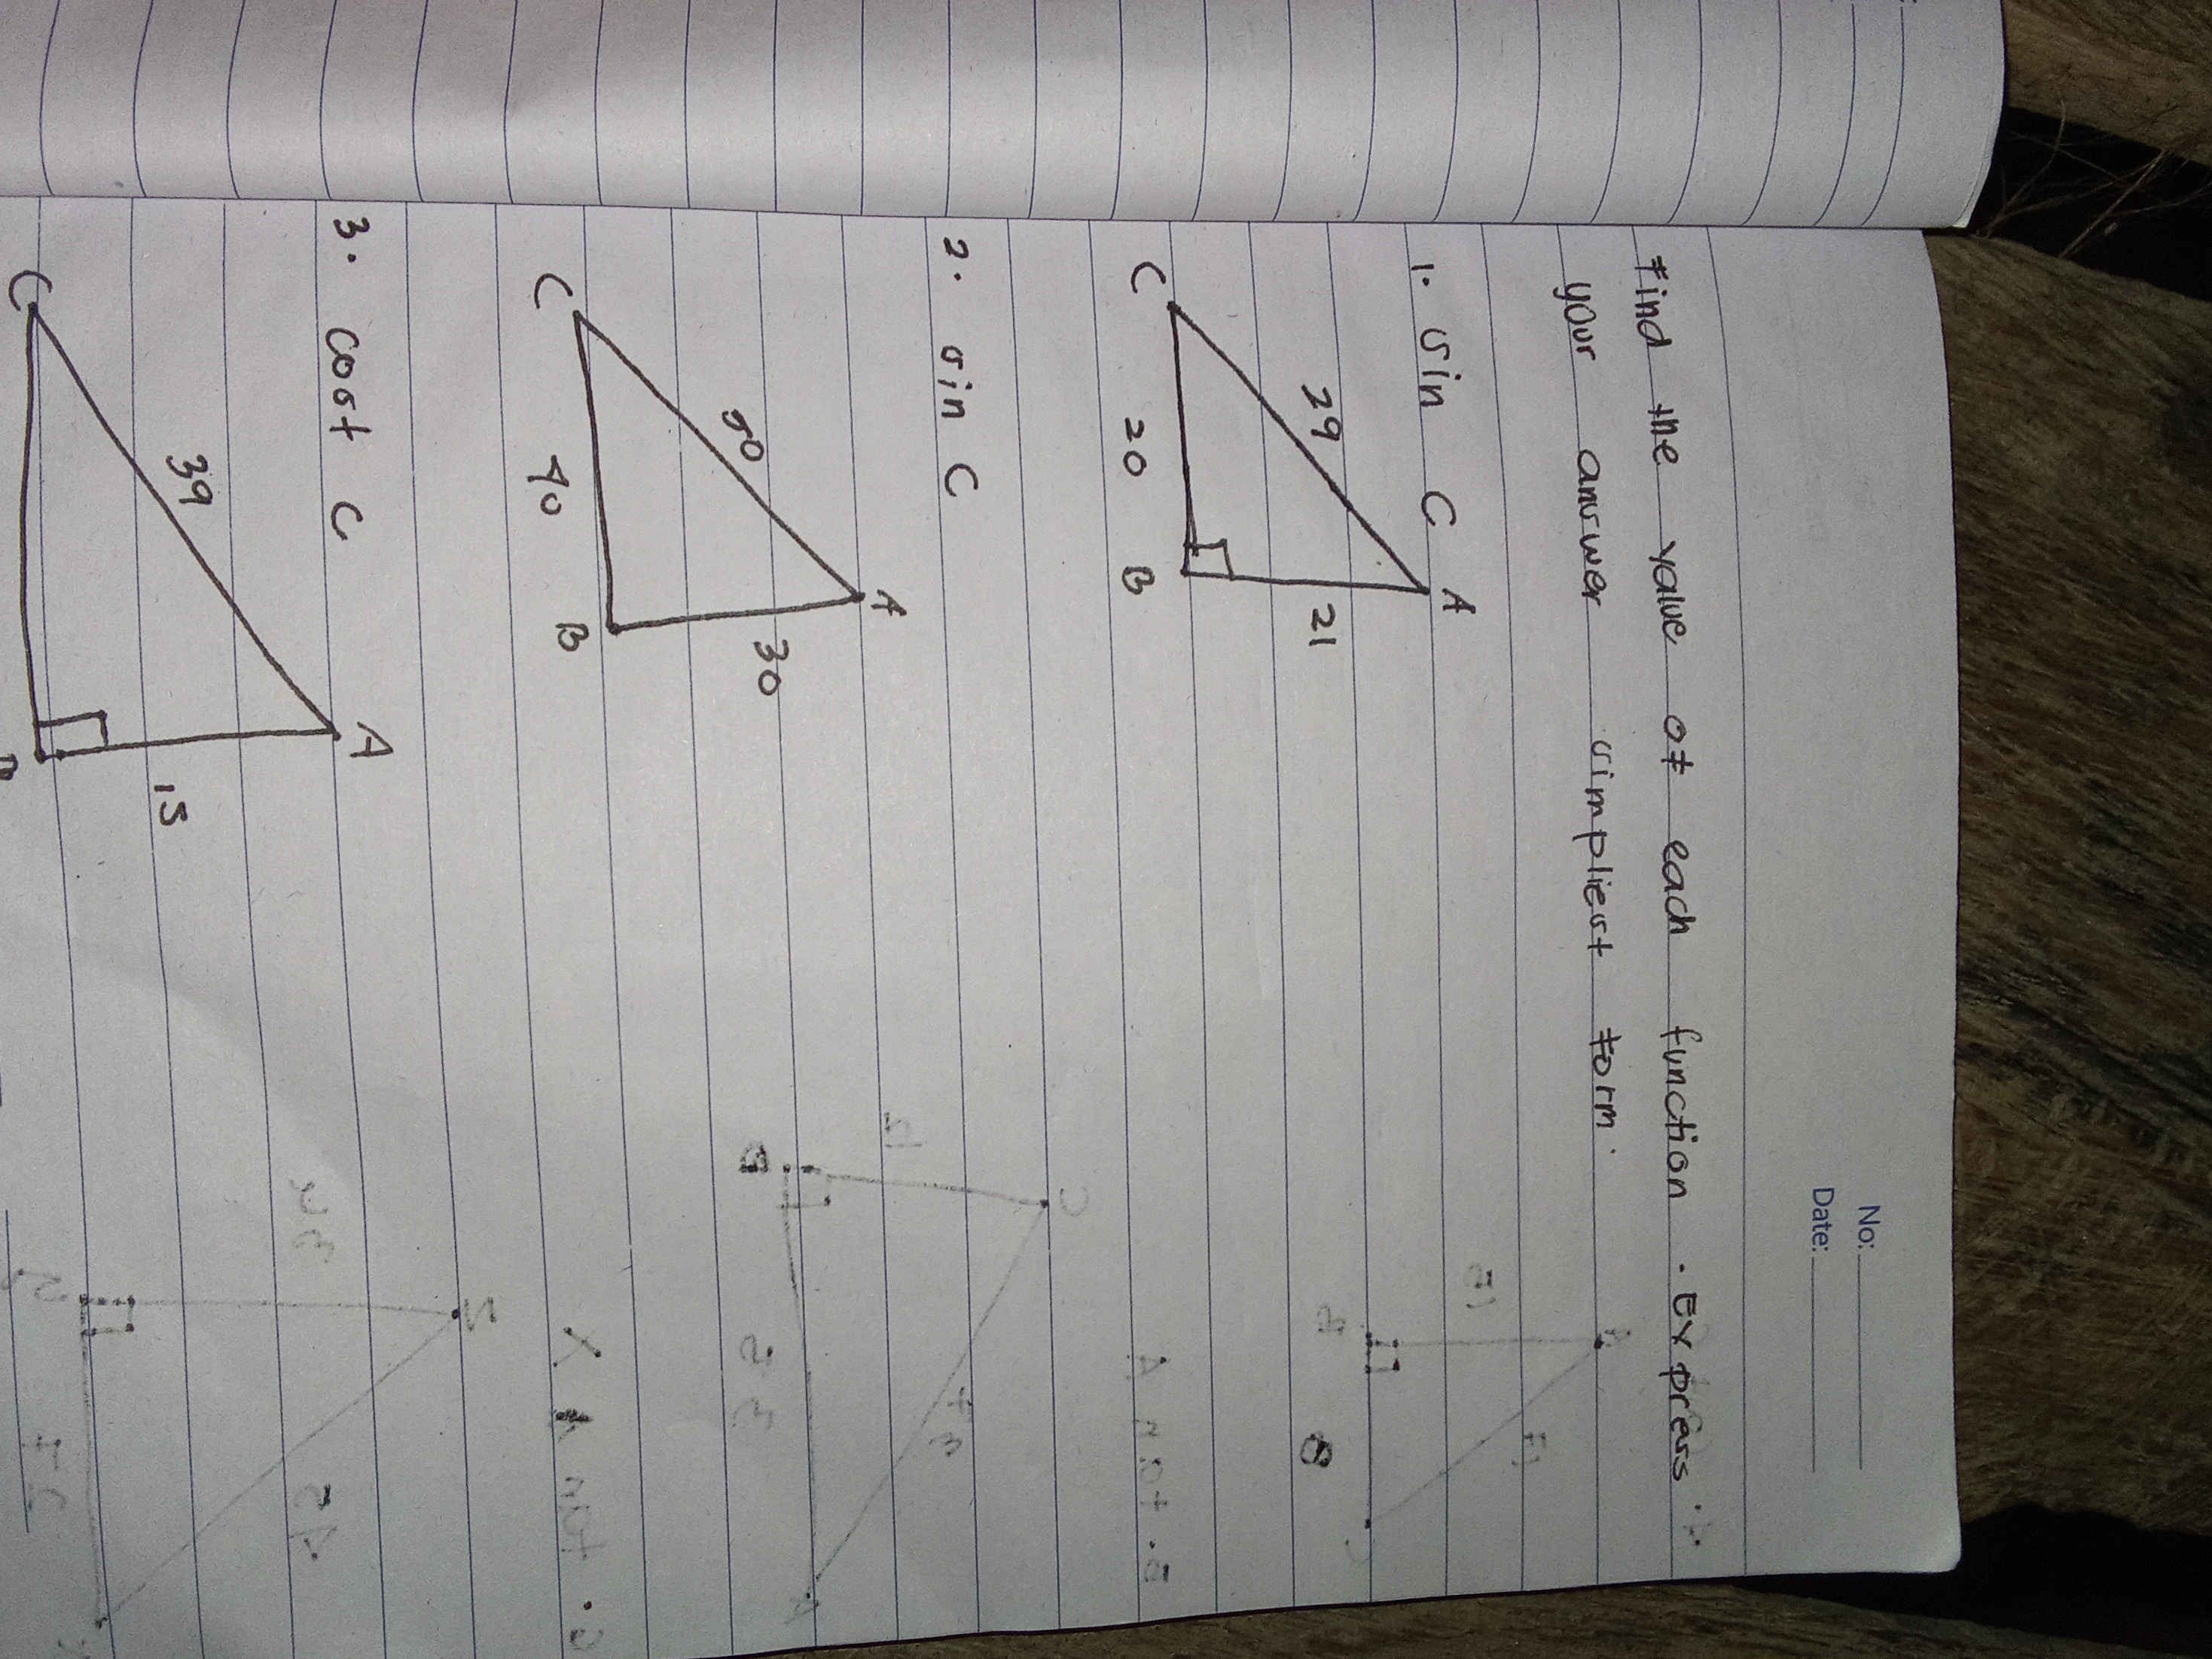 No:
Date:
Find the value of each function. Express
your answer simpliest form.
1. sin C
A
29
21
C
20
B
2. sin C
A
50
30
C
40
B
3. cost C
A
39
15
C
B